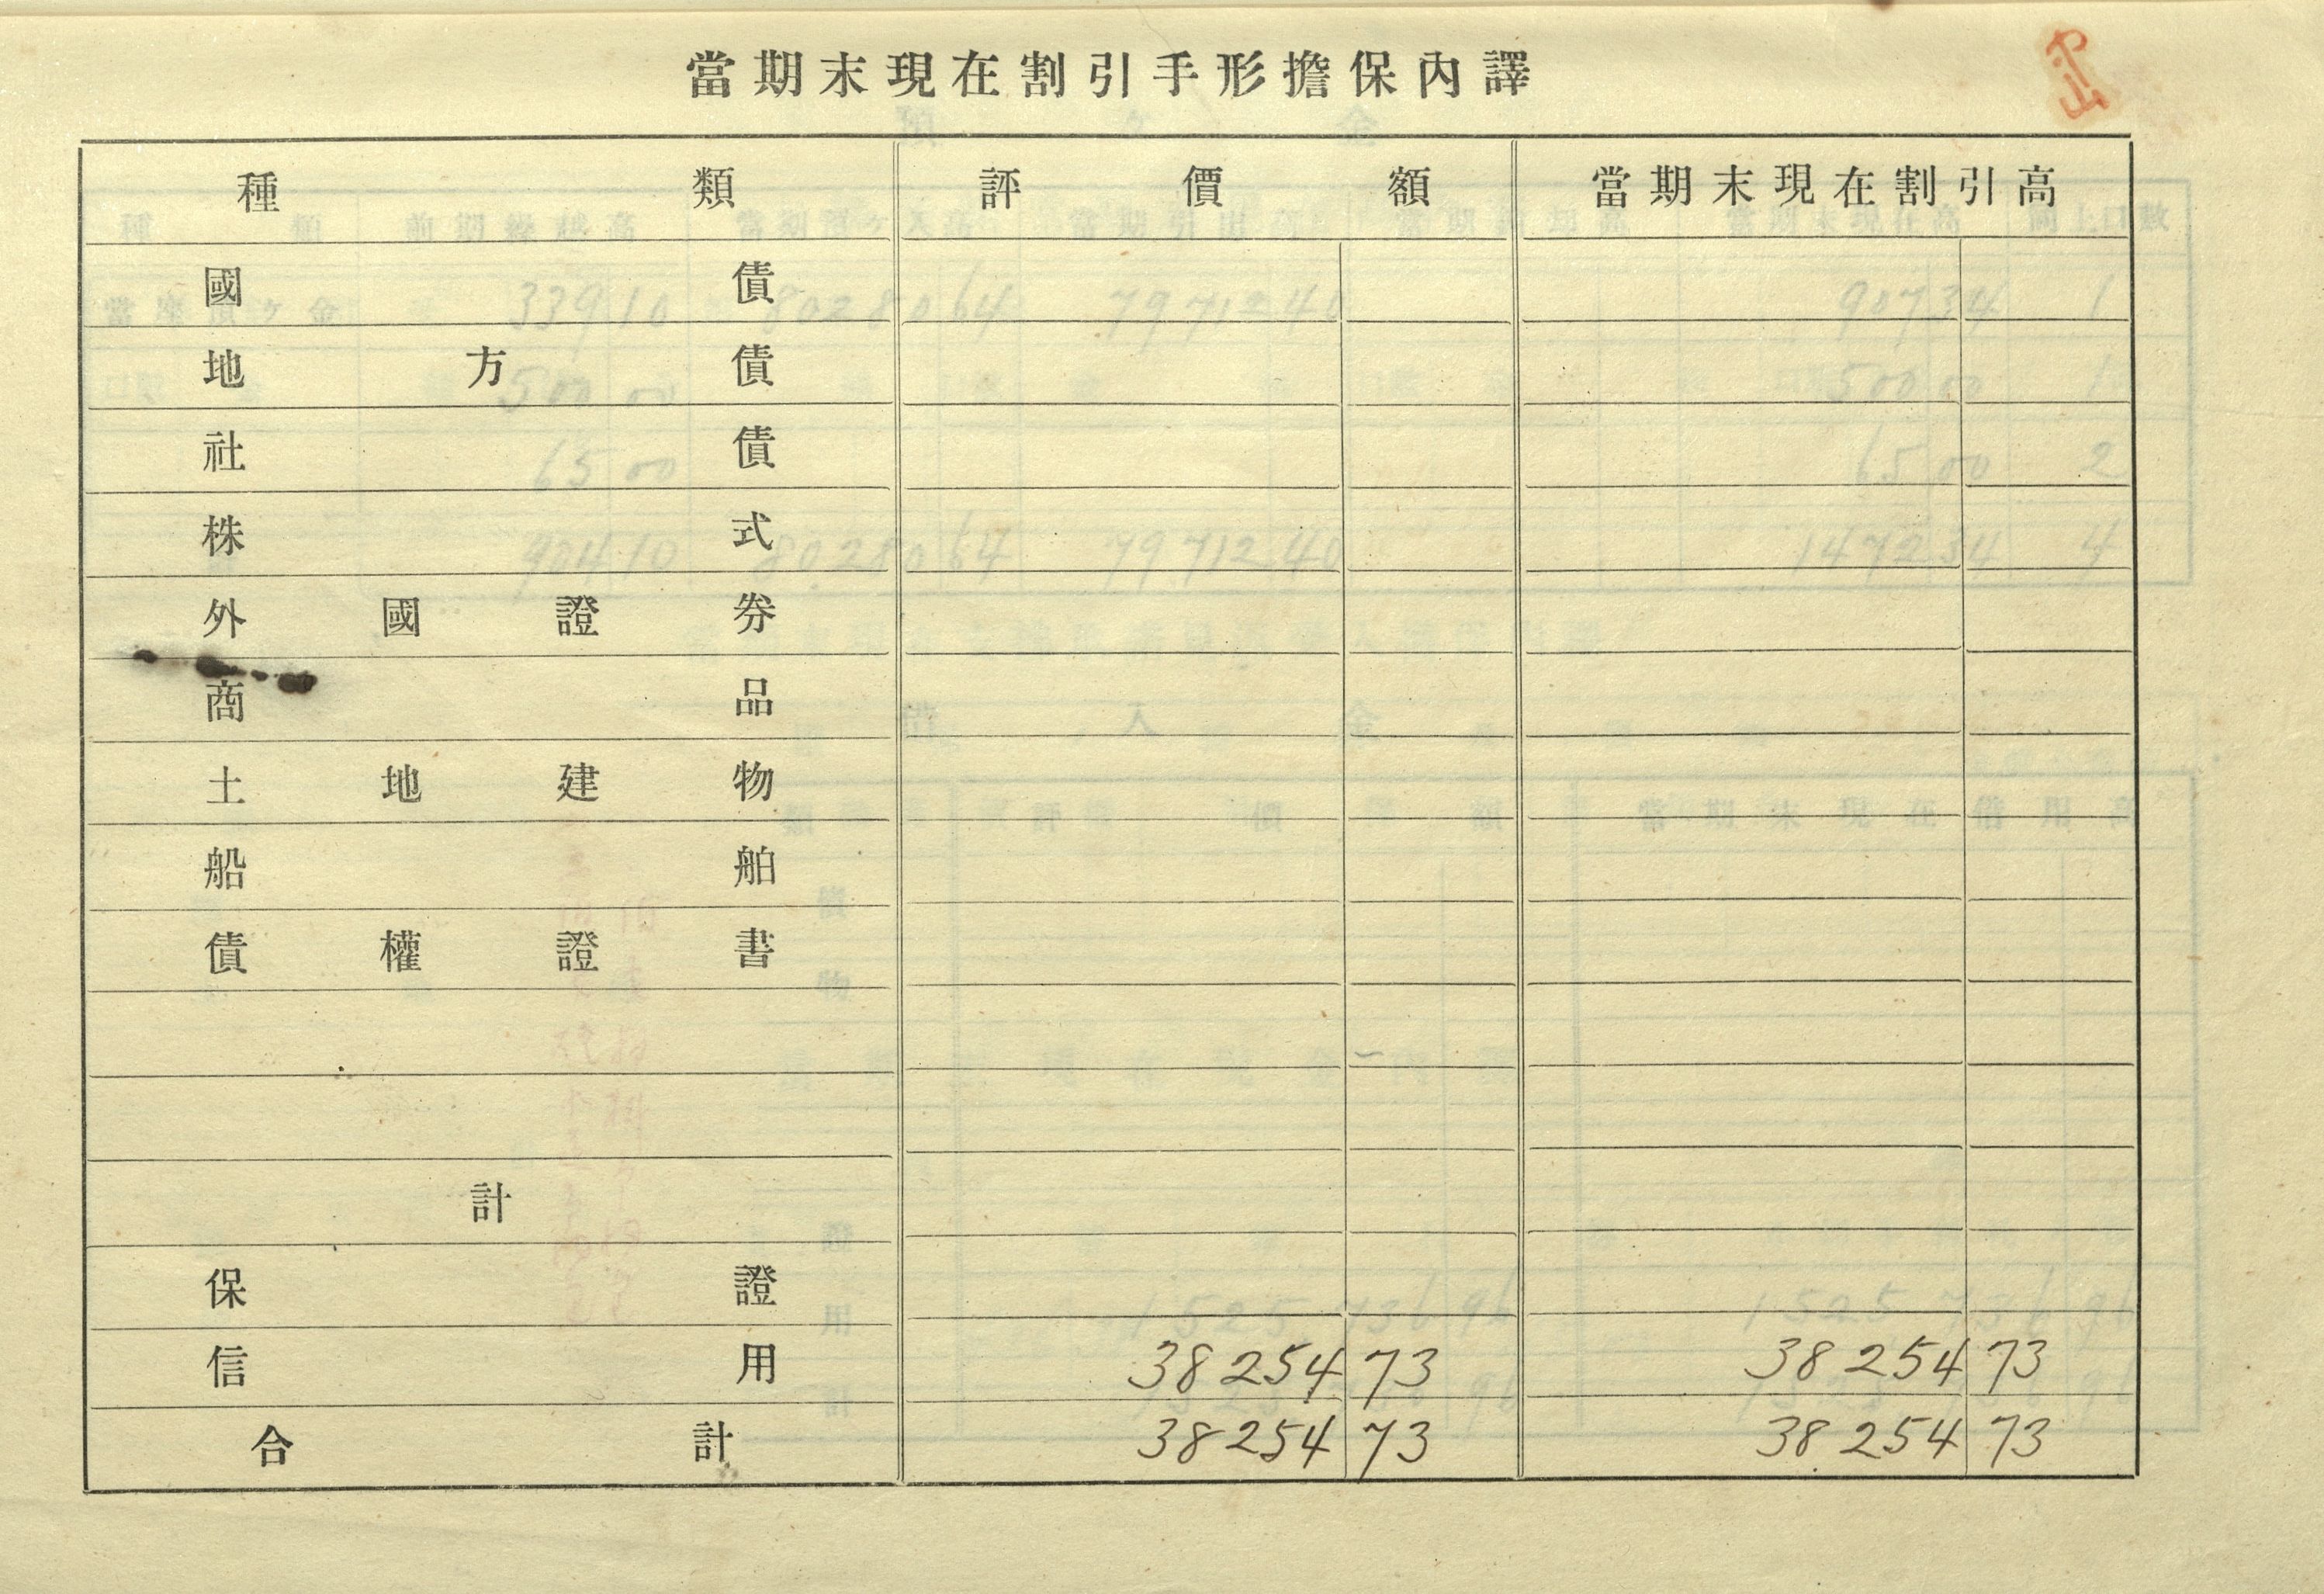 當期末現在割引手形擔保內譯
種類 評價額 當期末現在割引高
國債
地方債
社債
株式
外國證券
商品
土地建物
船舶
債權證書
計
保證
信用 38 254 73 38 254 73
合計 38 254 73 38 254 73